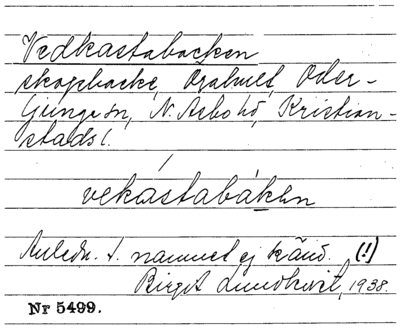 Vedkastabacken
skogsbacke, Örahult, Oder-
Ljunga sn, N. Åsbo hd, Kristian-
stads l.
vekastabákən
Anledn. t. namnet ej känd. (!)
Birgit Lundkvist, 1938.
Nr 5499.